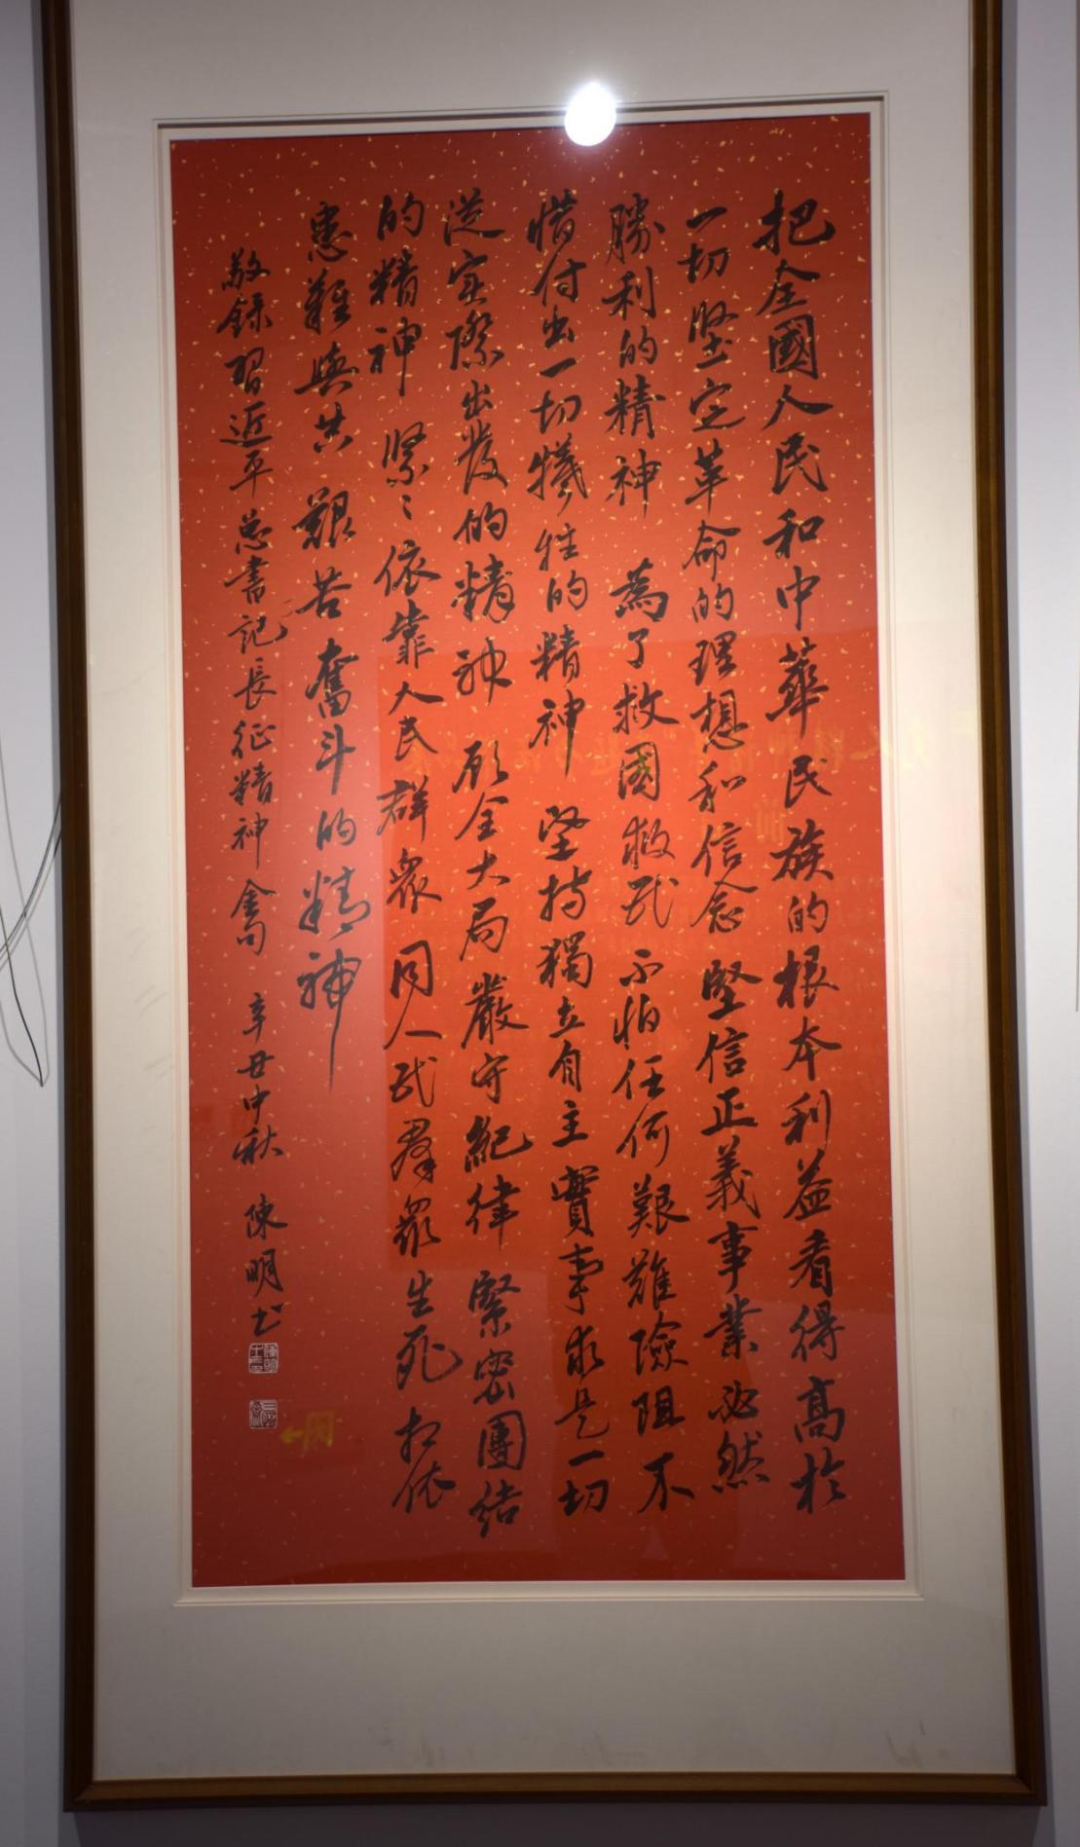 把全國人民和中華民族的根本利益看得高於
一切堅定革命的理想和信念堅信正義事業必然
勝利的精神 為了救國救民不怕任何艱難險阻不
惜付出一切犧牲的精神 堅持獨立自主實事求是一切
從实際出發的精神 顾全大局嚴守紀律 緊密團結
的精神 緊〻依靠人民群衆 同人民羣眾生死相依
患難與共 艱苦奮斗的精神
敬録習近平总書記長征精神 辛丑中秋 陳明书